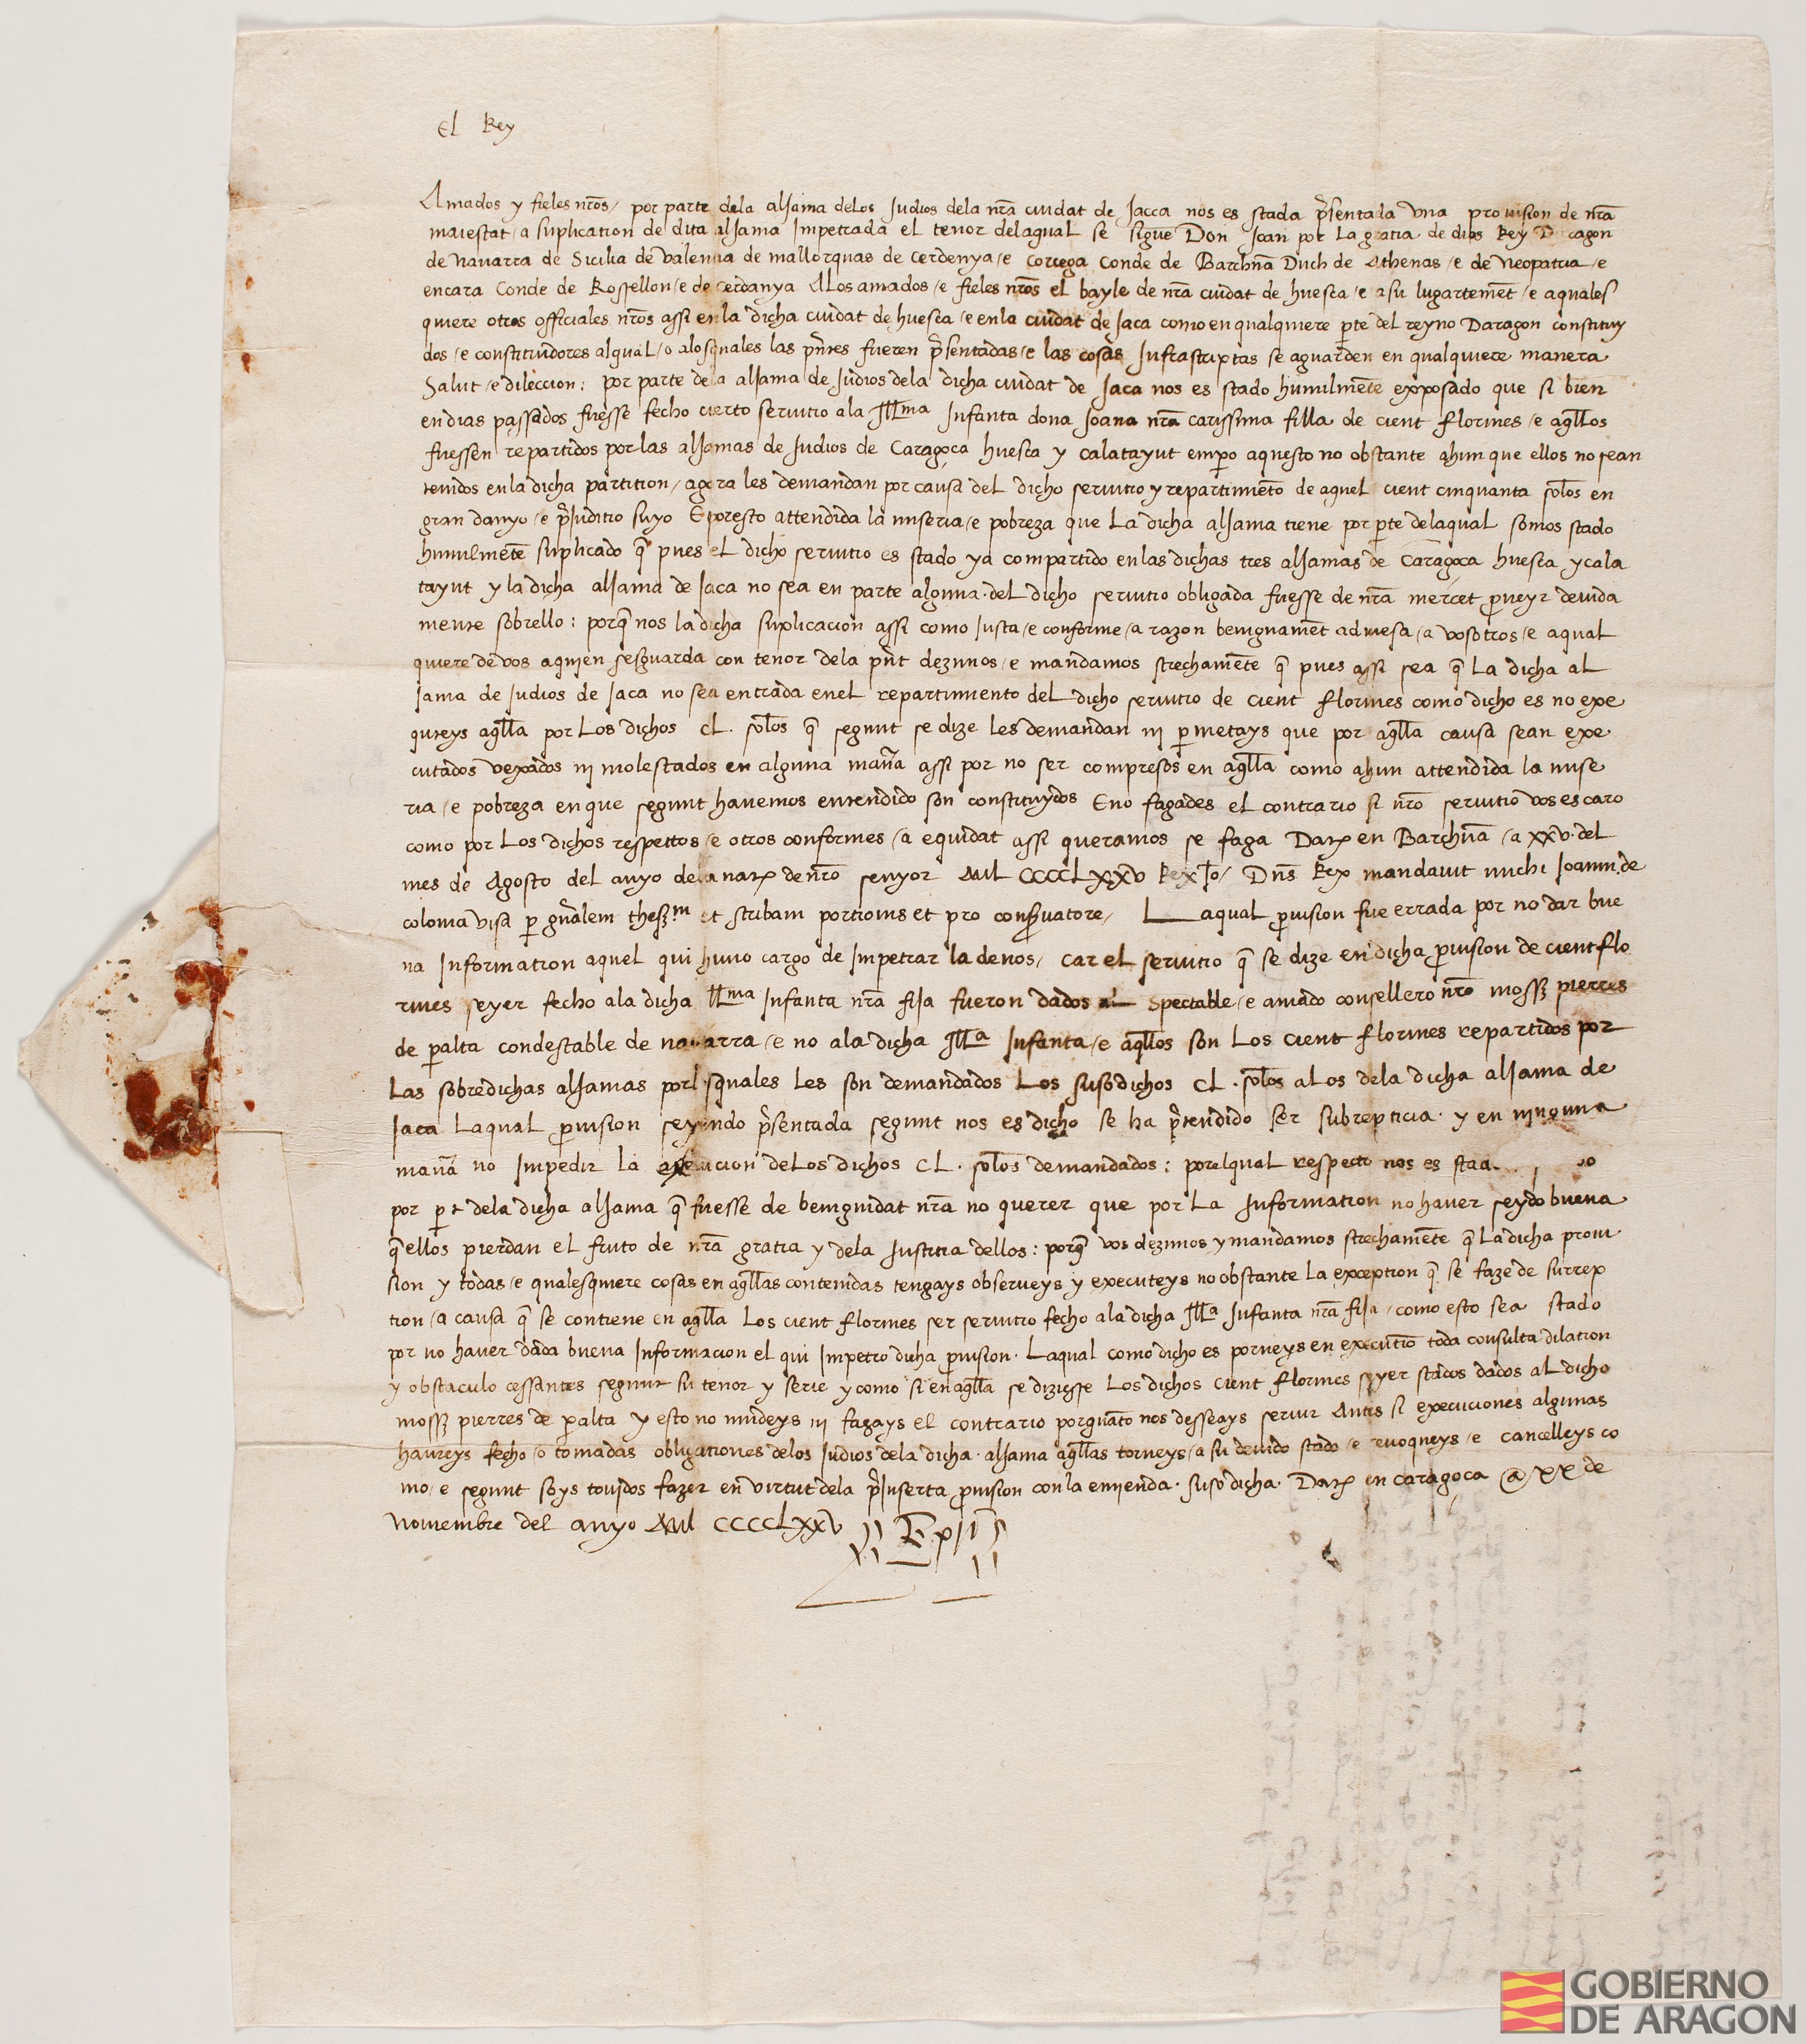 El Rey
Amados y fieles nr̃os / por parte dela alJama delos Judios dela nr̃a ciudat de Jacca nos es stada p̃sentada vna prouision de nr̃a
maiestat / a suplication de dita alJama Impetrada el tenor delaqual se sigue Don Joan por La gratia de dios Rey D ragon
de Nauarra de Sicilia de valencia de mallorquas de Cerdenya / e Corcega Conde de Barchñа Duch de Athenas / e de Neopatria / e
encara Conde de Rossellon / e de Cerdanya ALos amados / e fieles nr̃os el bayle de nr̃a ciudat de huesca / e asu lugartenẽt / e aquales
quiere otros officiales nr̃os assi enla dicha ciudat de huesca / e enla ciudat de Jaca como en qualquiere p̱te del reyno Daragon constituy
dos / e constituidores alqual / o alosquales las pñtes fueren p̃sentadas / e las cosas Infrascriptas se aguarden en qualquiere manera
Salut / e dileccion: por parte dela alJama de Judios dela dicha ciudat de Jaca nos es stado humilmẽte exposado que si bien
endias passados fuesse fecho cierto seruitio ala Illma Infanta dona Joana nr̃a carissima filla de cient florines / e aq̃llos
fuessen repartidos por las alJamas de Judios de Caragoça huesca y calatayut emp̱o aquesto no obstante ahun que ellos no sean
tenidos enla dicha partition / agora les demandan por causa del dicho seruitio y repartimẽto de aquel cient cinquanta sol̃os en
gran danyo / e p̃Juditio suyo E poresto attendida la miseria / e pobreza que La dicha alJama tiene por p̱te delaqual somos stado
humilmẽte suplicado q̃ pues el dicho seruitio es stado ya compartido enlas dichas tres alJamas de Caragoça huesca y cala
tayut y la dicha alJama de Jaca no sea en parte alguna del dicho seruitio obligada fuesse de nr̃a mercet p̱ueyr deuida
mente sobrello: porq̃ nos la dicha suplicacion assi como Justa / e conforme / a razon benignamẽt admesa / a vosotros / e aqual
quiere de vos aquien sesguarda con tenor dela pñt dezimos / e mandamos strechamẽte q̃ pues assi sea q̃ La dicha al
Jama de Judios de Jaca no sea entrada enel repartimiento del dicho seruitio de cient florines como dicho es no exe
quteys aq̃lla por Los dichos CL. sol̃os q̃ segunt se dize les demandan ni p̱metays que por aq̃lla causa sean exe
cutados vexados ni molestados en alguna mañа assi por no ser compresos en aq̃lla como ahun attendida la mise
ria / e pobreza en que segunt hauemos entendido son constituydos E no fagades el contrario si nr̃o seruitio vos es caro
como por Los dichos respectos / e otros conformes / a equidat assi queramos se faga Datȝ en Barchñа / a xxv. del
mes de Agosto del anyo dela natȝ de nr̃o senyor Mil CCCCLxxv Rex Jo / Dñs Rex mandauit michi Joanni de
coloma visa p̱ gñalem thesȝm et scribam portionis et pro conseruatore / Laqual p̱uision fue errada por no dar bue
na Information aquel qui huuo cargo de Impetrar la de nos / car el seruitio q̃ se dize en dicha p̱uision de cient flo
rines seyer fecho ala dicha Illma Infanta nr̃a fiJa fueron dados al Spectable / e amado consellero nr̃o mossȝ pierres
de p̱alta condestable de nauarra / e no ala dicha Illa Infanta / e aq̃llos son Los cient florines repartidos por
Las sobredichas alJamas porl squales Les son demandados Los susodichos CL. sol̃os alos dela dicha alJama de
Jaca Laqual p̱uision seyendo p̃sentada segunt nos es dicho se ha p̃tendido ser subrepticia y en ninguna
mañа no Impedir la execucion deLos dichos CL. sol̃os demandados: porelqual respecto nos es
por p̱te dela dicha alJama q̃ fuesse de benignidat nr̃a no querer que por La Information no hauer seydo buena
q̃ ellos pierdan el fruto de nr̃a gratia y dela Justitia dellos: porq̃ vos dezimos y mandamos strechamẽte q̃ La dicha proui
sion y todas / e qualesquiere cosas en aq̃llas contenidas tengays obserueys y executeys no obstante La exception q̃ se faze de surrep
tion / a causa q̃ se contiene en aq̃lla Los cient florines ser seruitio fecho ala dicha Illa Infanta nr̃a fiJa / como esto sea stado
por no hauer dada buena Informacion el qui Impetro dicha p̱uision. Laqual como dicho es porneys en executio toda consulta dilation
y obstaculo cessantes segunt su tenor y serie y como si en aq̃lla se diziesse Los dichos cient florines seyer stados dados aL dicho
mossȝ pierres de p̱alta y esto no mudeys ni fagays el contrario porquãto nos desseays seruir Antes si execuciones algunas
haureys fecho / o tomadas obligationes delos Judios dela dicha alJama aq̃llas torneys / a su deuido stado / e reuoqueys / e cancelleys co
mo / e segunt soys touidos fazer en virtut dela p̃Inserta p̱uision con la emienda susodicha. Datȝ en Caragoça @ xx de
Nouiembre del anyo Mil CCCCLxxv
GOBIERNO
DE ARAGON